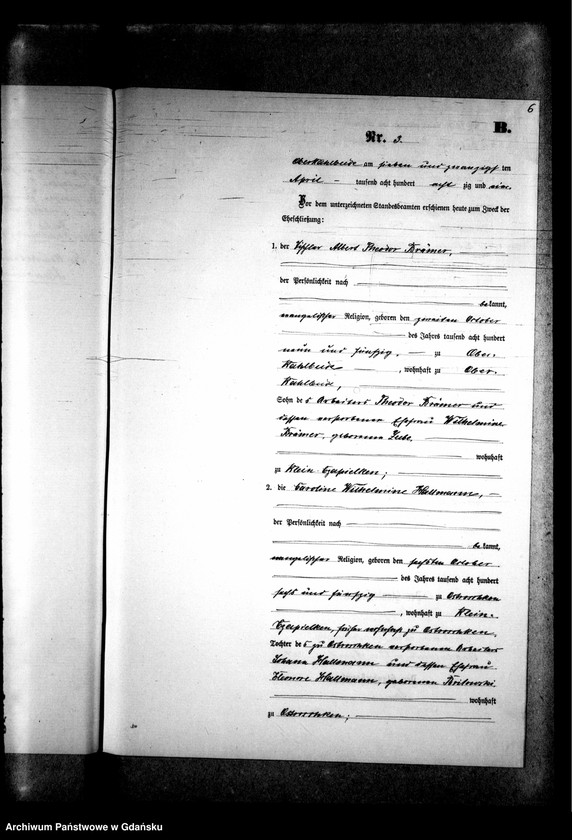 6
B.
Nr. 3.
Oberkahlbude am sieben und zwanzigsten
April tausend acht hundert acht zig und eins.
Vor dem unterzeichneten Standesbeamten erschienen heute zum Zweck der
Eheschließung:
1. der Albert Theodor Krämer,
der Persönlichkeit nach
bekannt,
evangelischer Religion, geboren den zweiten October
des Jahres tausend acht hundert
neun und fünfzig, zu Ober-
Kahlbude, wohnhaft zu Ober-
Kahlbude,
Sohn des Arbeiters Theodor Krämer und
dessen verstorbener Ehefrau Wilhelmine
Krämer, geborenen
wohnhaft
zu Klein Czapielken;
2. die Caroline Wilhelmine Hallmann,
der Persönlichkeit nach
bekannt,
evangelischer Religion, geboren den sechsten October
des Jahres tausend acht hundert
sechs und fünfzig zu Ostroschken
, wohnhaft zu Klein-
Czapielken, früher zu Ostroschken,
Tochter des zu Ostroschken verstorbenen Arbeiters
Johann Hallmann und dessen Ehefrau
Eleonore Hallmann, geborenen
wohnhaft
zu Ostroschken;
Archiwum Państwowe w Gdańsku